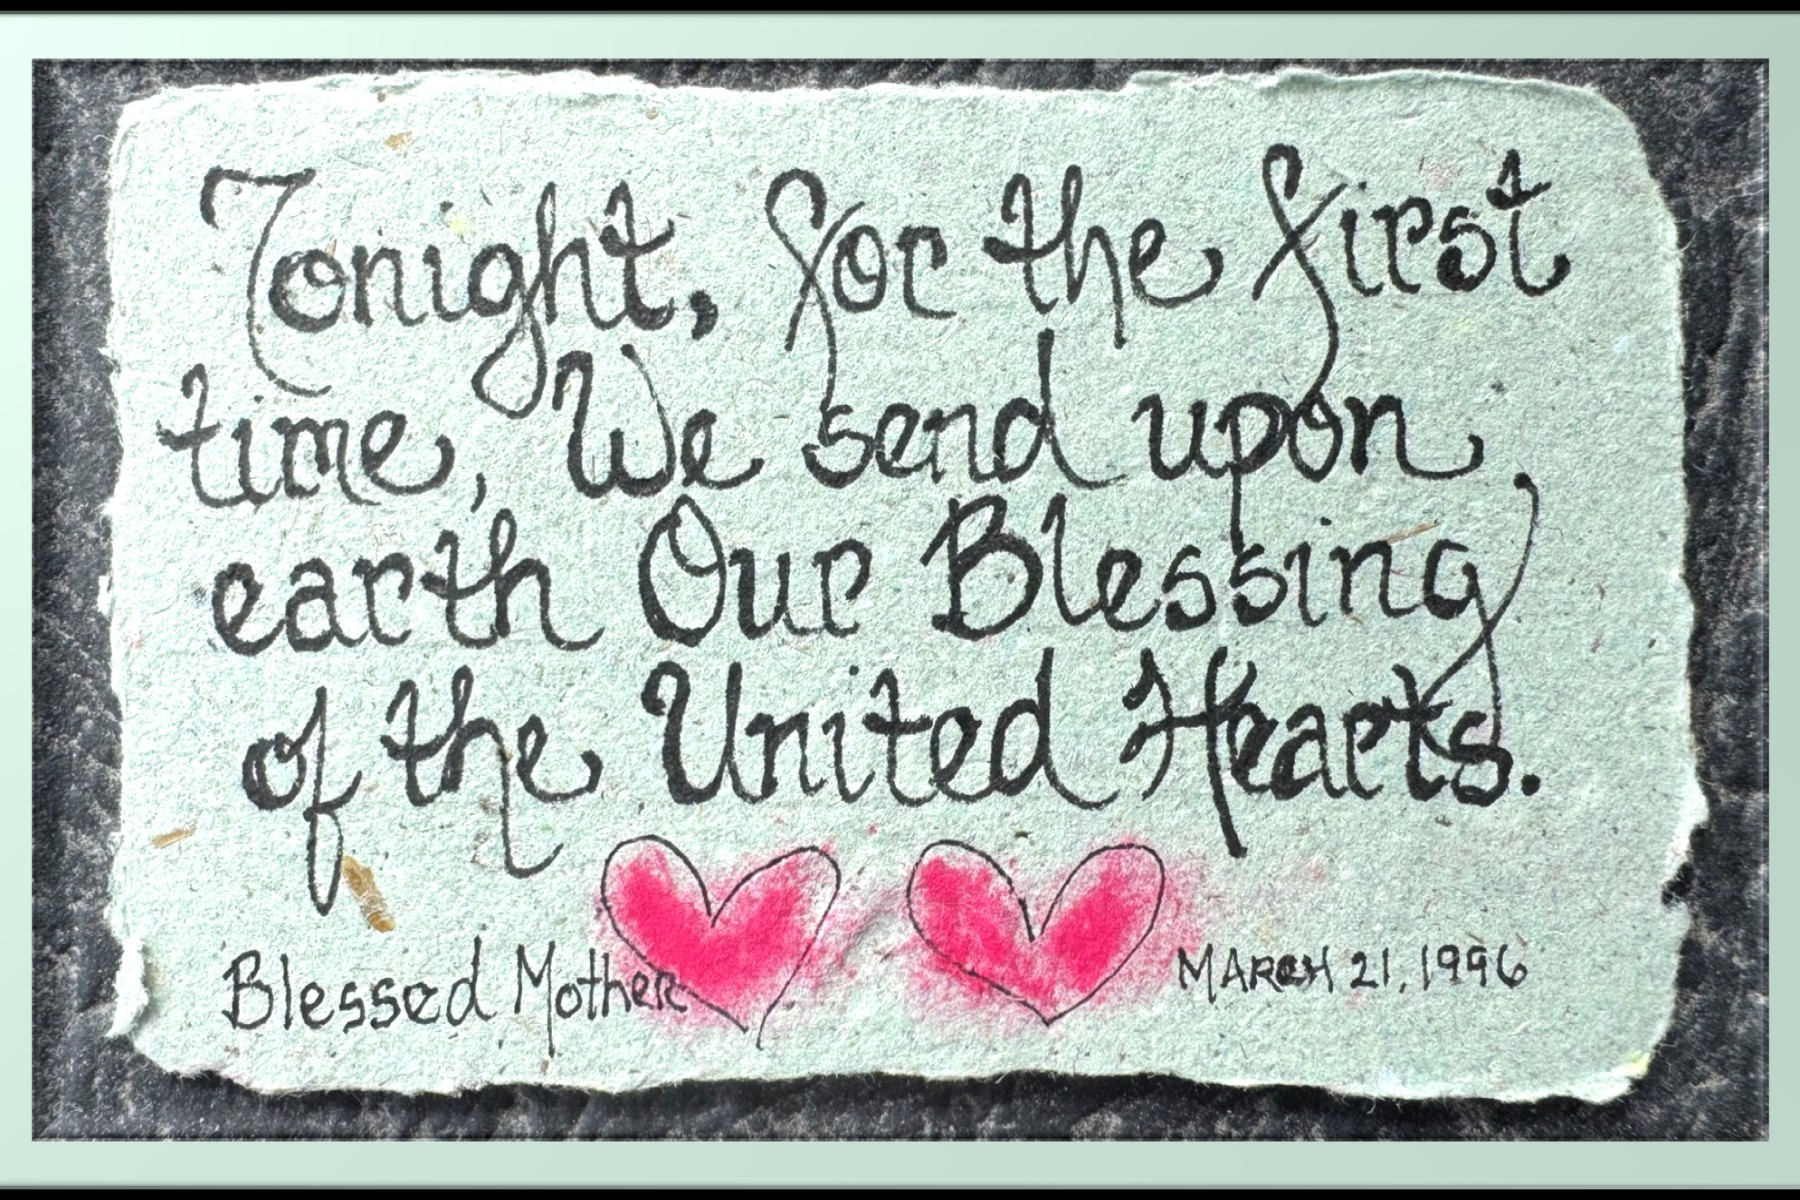 Tonight, for the first
time, We send upon
earth Our Blessing
of the United Hearts.
Blessed Mother
MARCH 21, 1996